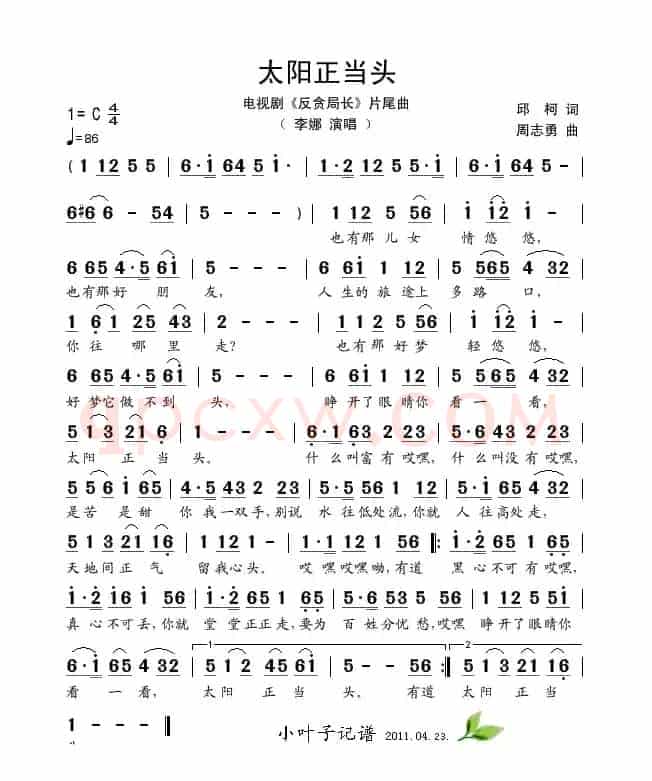 太阳正当头
电视剧《反贪局长》片尾曲
(李娜 演唱)
1=C 4/4
♩=86
邱 柯 词
周志勇 曲
(1 12 5 5 | 6·1 64 5 1 | 1·2 12 5 5 | 5·1 64 5 5 |
6#6 6 - 54 | 5 - - -) | 1 12 5 56 | 1 12 1 - |
也有那儿女 情悠 悠,
6 65 4·5 61 | 5 - - - | 6 61 5 56 | 5 565 4 32 |
也有那好 朋 友, 人生的旅途上 多路 口,
1 61 25 43 | 2 - - - | 1 12 5 56 | 1 12 1 - |
你往 哪里 走? 也有那好梦 轻悠悠,
6 65 4·5 61 | 5 - - - | 6 61 5 56 | 5 565 4 32 |
好梦它做不到 头, 睁开了眼睛你 看一 看,
5 13 23 216 | 1 - - - | 6·1 63 2 23 | 5·6 43 2 23 |
太阳 正当 头。 什么叫富有哎嘿, 什么叫没有哎嘿,
5·5 12 1 65 | 5·5 643 2 23 | 5·5 56 1 12 | 5·5 56 5 - |
是苦是甜 你 我一双手,别说 水往低处流,你就 人往高处走,
5 13 21 16 | 1 112 1 - | 1·1 12 1 56 :| 1·2 16 1 65 |
天地间正 气 留我心头。 哎嘿哎嘿呦,有道 黑心不可有哎嘿,
1·2 16 1 56 | 1·2 16 1 65 | 5·5 56 1 12 | 5 56 1 56 |
真心不可丢,你就 堂堂正正走,要为 百姓分忧愁,哎嘿 睁开了眼睛你
6·1 65 4 32 | 1 512 45 216 | 1 - - 56 :| 2 513 21 16 |
看 一看, 太阳 正当 头。 有道 太阳 正当
1 - - - |
头。
小叶子记谱 2011.04.23.
qpcxw.com